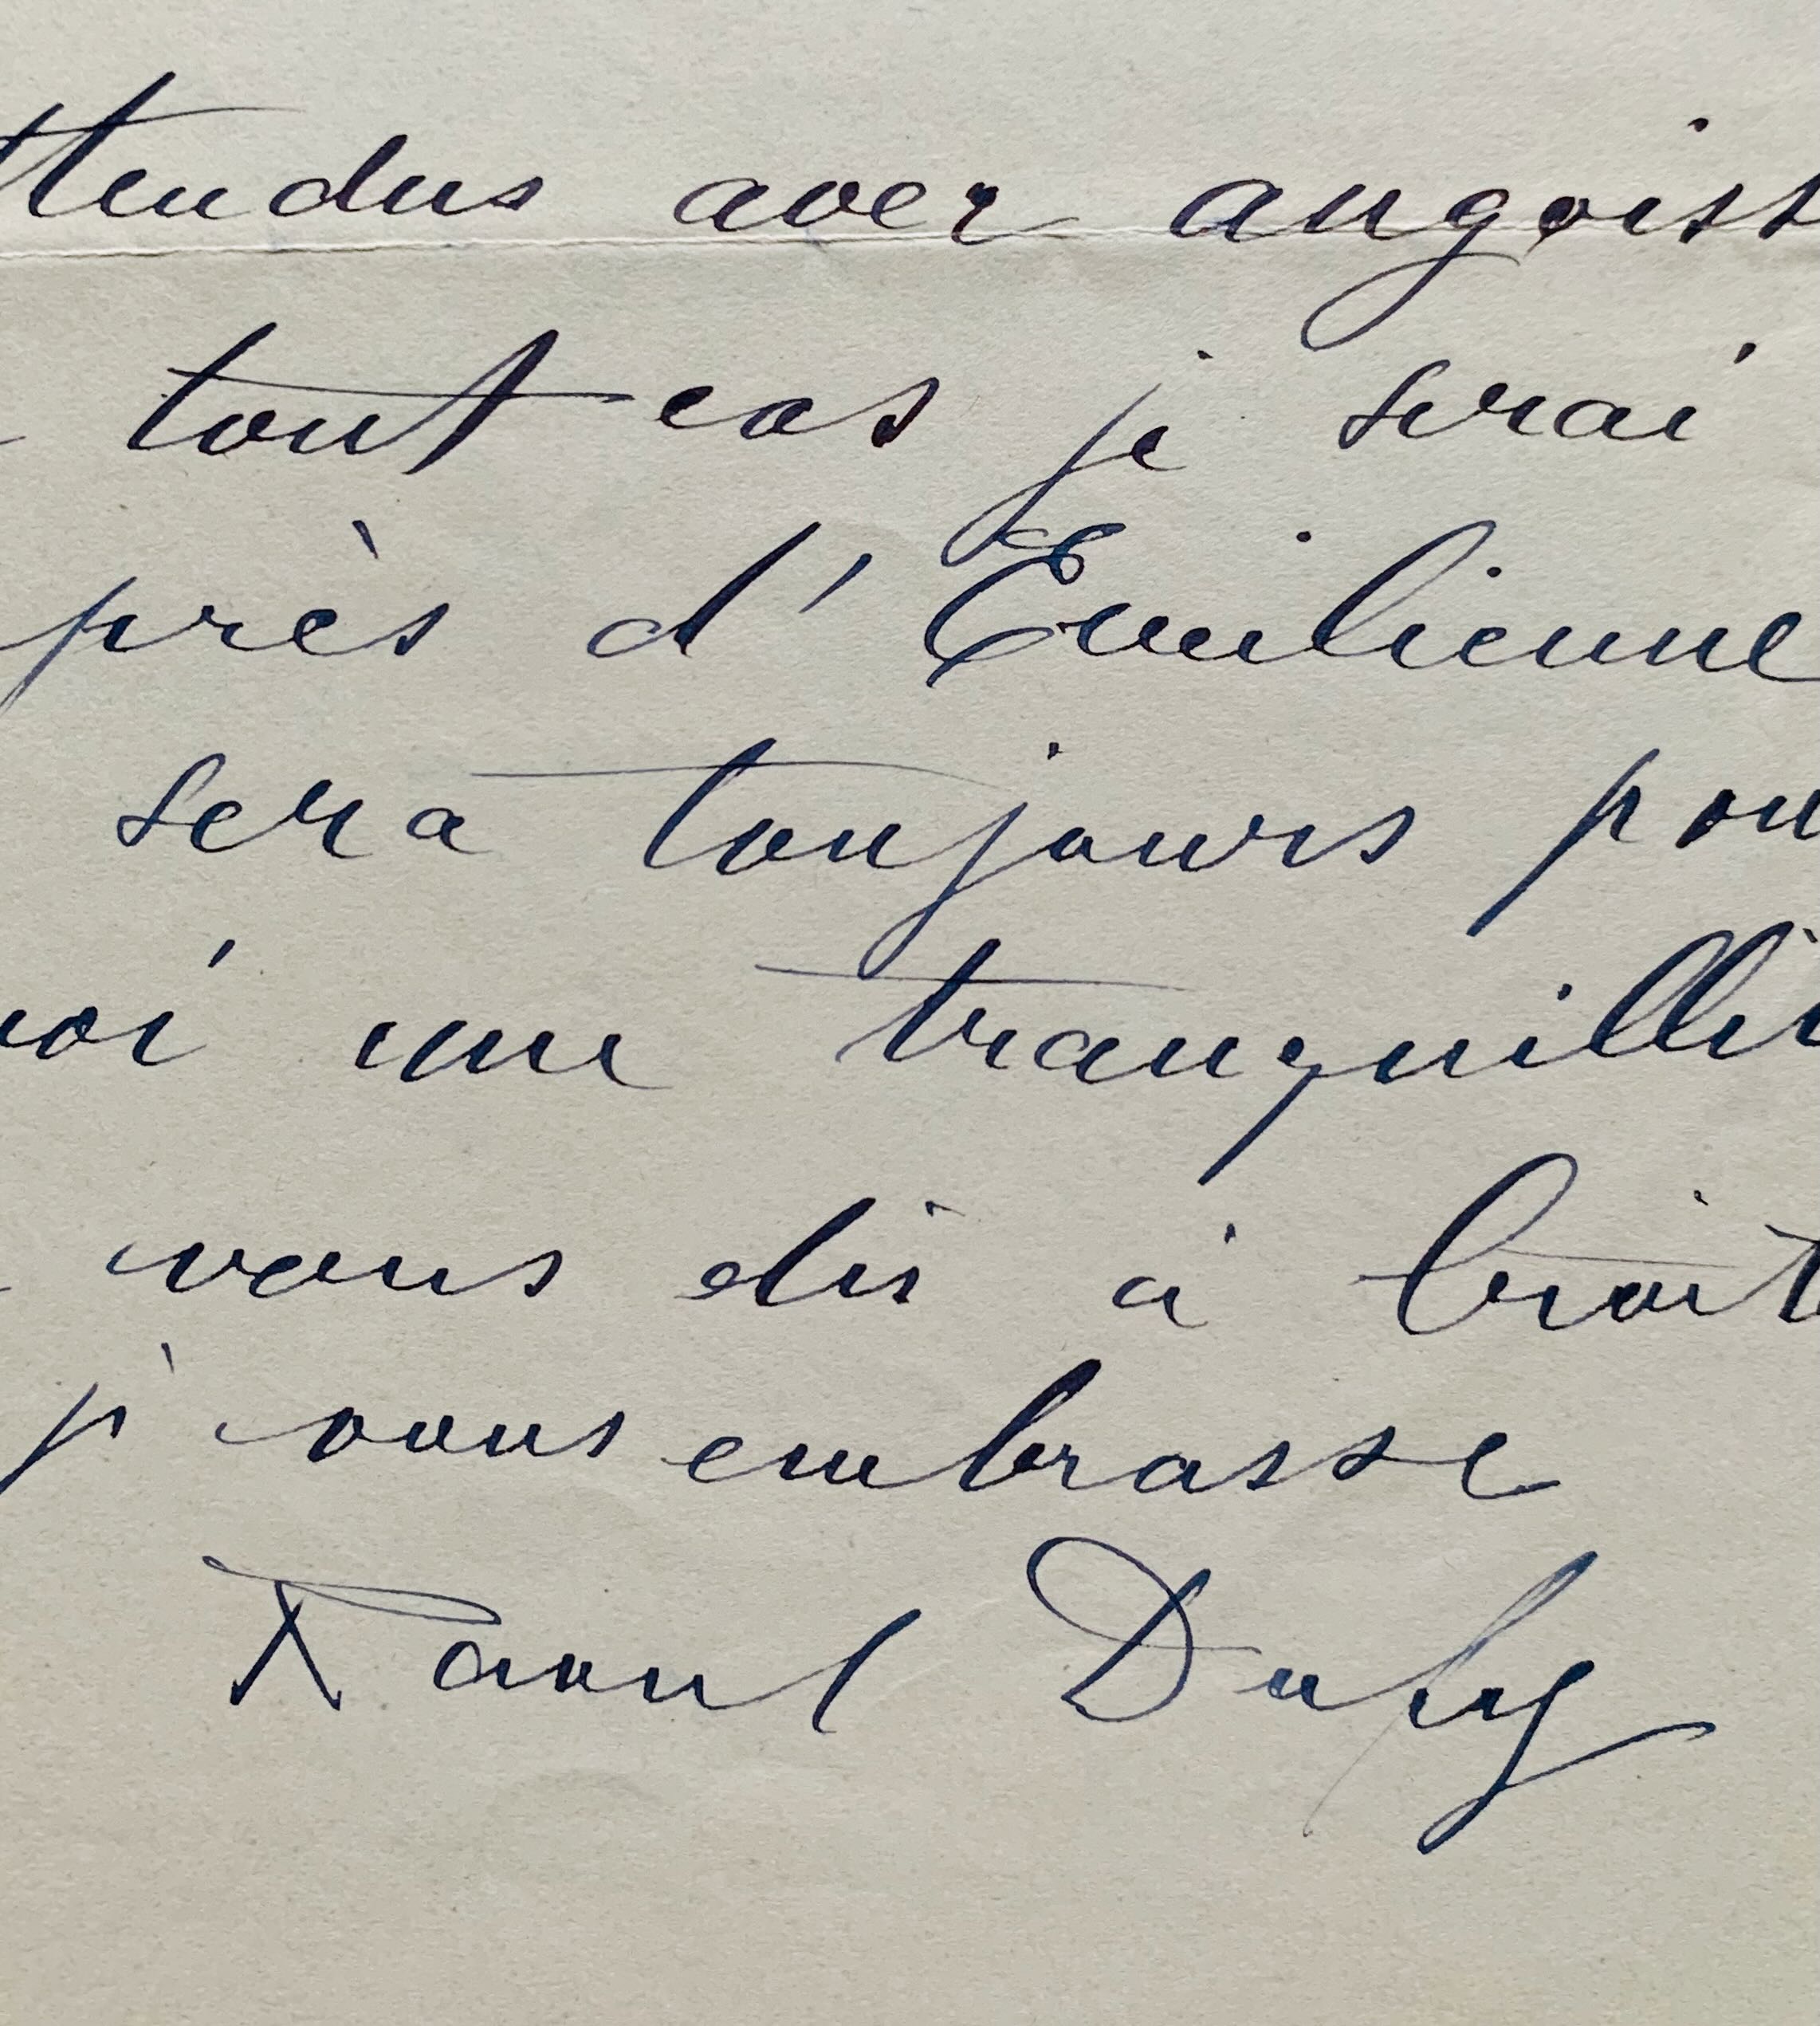 ttendus avec angoiss
tout cas je serai
près d'Emilienne
sera toujours pou
moi une tranquillit
vous dis à bient
je vous embrasse
Raoul Dufy